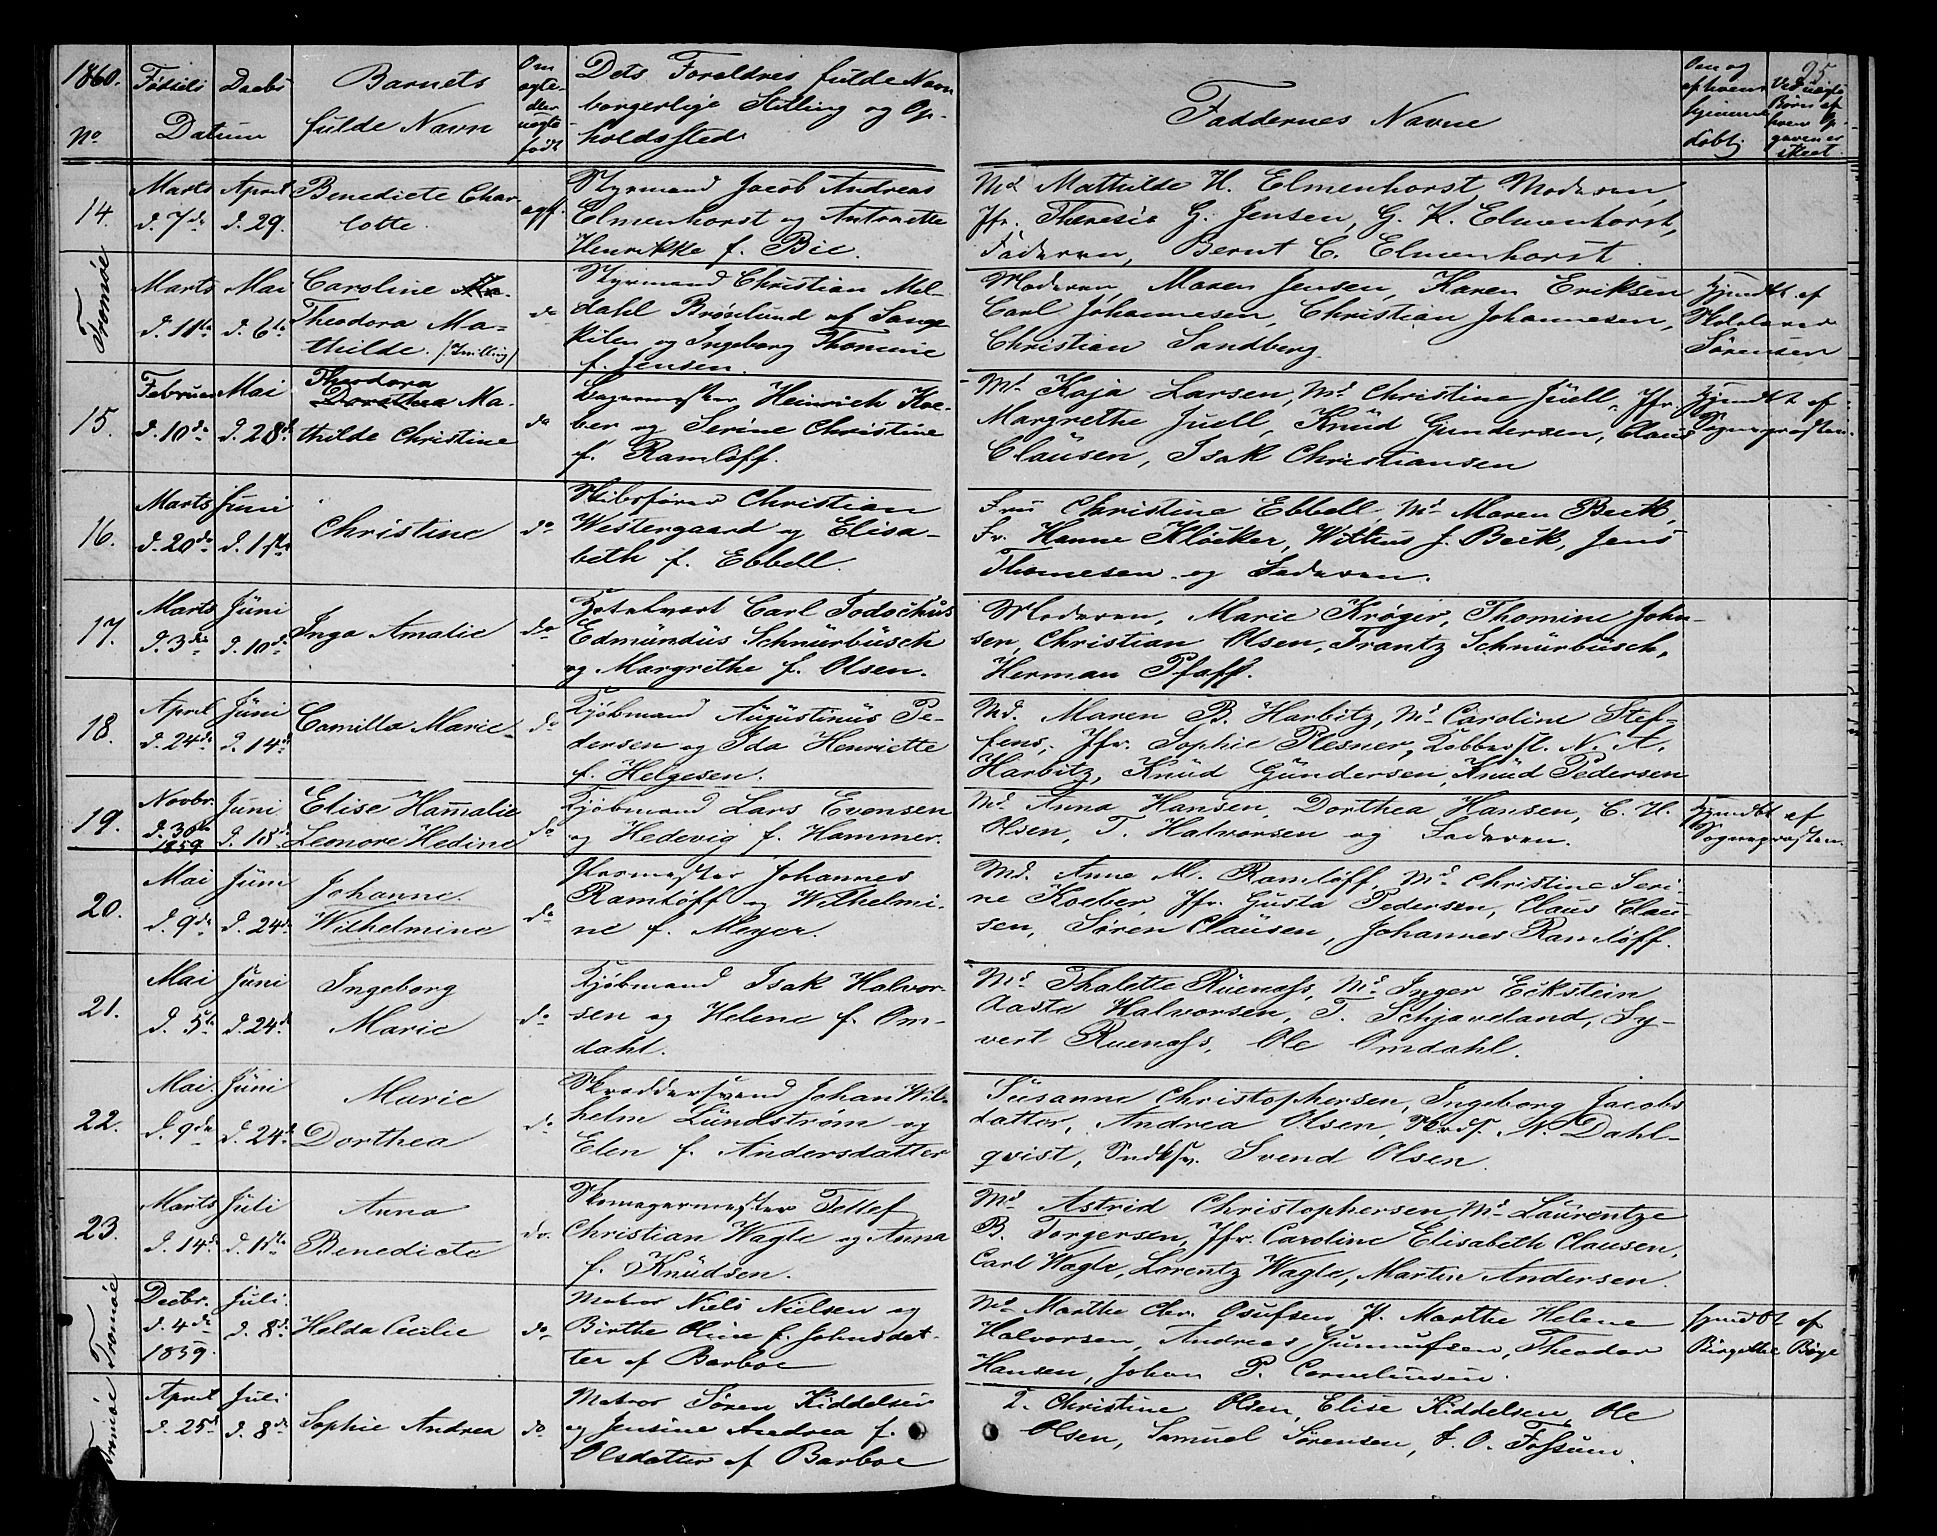 1860.
No
Fødsels Daabs
Datum
Barnets
fulde Navn
Om
ægte
eller
uægte
født
Dets Forældres fulde Navn
borgerlige Stilling og Op-
holdssted
Faddernes Navne
Om og
af hvem
hjemme
døbt
95
Ved uægte
Børn af
hvem Op-
gaven er
skeet.
14.
Marts d. 7de
April d. 29.
Benedicte Char
lotte.
ægt.
Styrmand Jacob Andreas
Elmenhorst og Antonette
Henrikke f. Bie.
Md Mathilde H. Elmenhorst, Moderen,
Jfr. Theresia G. Jensen, G. K. Elmenhorst,
Faderen, Bernt C. Elmenhorst.
Tromøe
Marts d. 11te
Mai d. 6te
Caroline
Theodora Ma-
thilde. /Tvilling/
do
Styrmand Christian Mel-
dahl Brøslund af Sange
kilen og Ingeborg Thomine
f. Jensen.
Moderen, Maren Jensen, Karen Eriksen
Carl Johannesen, Christian Johannesen,
Christian Sandberg.
hjemdbt af
Sørensen
15.
Februar d. 10de
Mai d. 28de
Theodora
Dorothea Ma-
thilde Christine
do
Bagermester Heinrich Koe-
ber og Serine Christine
f. Ramløff.
Md Kaja Larsen, Md Christine Juell, Jfr.
Margrethe Juell, Knud Gundersen, Claus
Clausen, Isak Christiansen
hjemdbt af
Sognepræsten.
16.
Marts d. 20de
Juni d. 1ste
Christine
do
Skibsfører Christian
Westergaard og Elisa-
beth f. Ebbell.
Fru Christine Ebbell, Md Maren Beck,
Fr. Hanne Kløcker, Wittus f. Beck, Jens
Thomesen og Faderen.
17.
Marts d. 3die
Juni d. 10de
Inga Amalie
do
Carl Jodochus
Edmundus Schnürbusch
og Margrethe f. Olsen.
Moderen, Marie Krøger, Thomine John-
sen, Christian Olsen, Frantz Schnürbusch,
Herman Pfaff.
18.
April d. 24de
Juni d. 14de
Camilla Marie
do
Kjøbmand Augustinus Pe-
dersen og Ida Henriette
f. Helgesen.
Md. Maren B. Harbitz, Md Caroline Stef-
fens, Jfr. Sophie Plesner, Kobberst. N. A.
Harbitz, Knud Gundersen, Knud Pedersen
19.
Novbr. d. 30te 1859
Juni d. 18de
Elise Hamalie
Leonore Hedine
do
Kjøbmand Lars Evensen
og Hedevig f. Hammer.
Md. Anna Hansen, Dorthea Hansen, C. H.
Olsen, T. Halvorsen og Faderen.
Hjemdbt af
Sognepræsten.
20.
Mai d. 9de
Juni d. 24de
Johanne
Wilhelmine
do
Johannes
Ramløff og Wilhelmi-
ne f. Meyer.
Md. Anne M. Ramløff, Md Christine Seri-
ne Koeber, Jfr. Gusta Pedersen, Claus Clau-
sen, Søren Clausen, Johannes Ramløff.
21.
Mai d. 5te
Juni d. 24de
Ingeborg
Marie
do
Kjøbmand Isak Halvor-
sen og Helene f. Om-
dahl.
Md Thalette Ruenæss, Md Inger Eckstein
Aaste Halvorsen, T. Schjaveland, Sy-
vert Ruenæss, Ole Omdahl.
22.
Mai d. 9de
Juni d. 24de
Marie
Dorthea
do
Skræddersvend Johan Wil-
helm Lundstrøm og
Elen f. Andersdatter
Susanne Christophersen, Ingeborg Jacobs
datter, Andrea Olsen, N. Dahl-
qvist, Svend Olsen.
23.
Marts d. 14de
Juli d. 1ste
Anna
Benedicte
do.
Skomagermester Tellef
Christian Wagle og Anna
f. Knudsen.
Md Astrid Christophersen, Md Laurentze
B. Torgersen, Jfr. Caroline Elisabeth Clausen,
Carl Wagle, Lorentz Wagle, Martin Andersen.
Tromøe
Decbr. d. 4de 1859.
Juli d. 8de
Helda Cecilie
do
Matros Niels Nielsen og
Birthe Oline f. Johnsdat-
ter af Barboe
Md Marthe Chr. Osufsen, P. Marthe Helene
Halvorsen, Andreas Gunnufsen, Theodor
Hansen, Johan P. Corneliussen.
hjemdbt af
Birgitte Bøye
Tromøe
April d. 25de
Juli d. 8de
Sophie Andrea
do
Matros Søren Kiddelsen
og Jensine Andrea f.
Olsdatter af Barboe
Christine Olsen, Elise Kiddelsen, Ole
Olsen, Samuel Sørensen, F. O. Fossum.